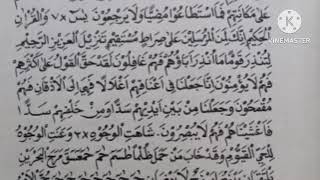 عَلٰى مَكَانَتِهِمْ فَمَا اسْتَطَاعُوْا مُضِيًّا وَّلَا يَرْجِعُوْنَ يٰسٓ ×٧ وَالْقُرْاٰنِ
الْحَكِيْمِ اِنَّكَ لَمِنَ الْمُرْسَلِيْنَ عَلٰى صِرَاطٍ مُّسْتَقِيْمٍ تَنْزِيْلَ الْعَزِيْزِ الرَّحِيْمِ
لِتُنْذِرَ قَوْمًا مَّا اُنْذِرَ اٰبَاؤُهُمْ فَهُمْ غٰفِلُوْنَ لَقَدْ حَقَّ الْقَوْلُ عَلٰى اَكْثَرِهِمْ
فَهُمْ لَا يُؤْمِنُوْنَ اِنَّا جَعَلْنَا فِيْ اَعْنَاقِهِمْ اَغْلَالًا فَهِيَ اِلَى الْاَذْقَانِ فَهُمْ
مُقْمَحُوْنَ وَجَعَلْنَا مِنْ بَيْنِ اَيْدِيْهِمْ سَدًّا وَّمِنْ خَلْفِهِمْ سَدًّا
فَاَغْشَيْنَاهُمْ فَهُمْ لَا يُبْصِرُوْنَ شَاهَتِ الْوُجُوْهُ ×٣ وَعَنَتِ الْوُجُوْهُ
لِلْحَيِّ الْقَيُّوْمِ وَقَدْ خَابَ مَنْ حَمَلَ ظُلْمًا طٰسٓمٓ حٰمٓ حٰمٓعٓسٓقٓ مَرَجَ الْبَحْرَيْنِ
Made with
KINEMASTER